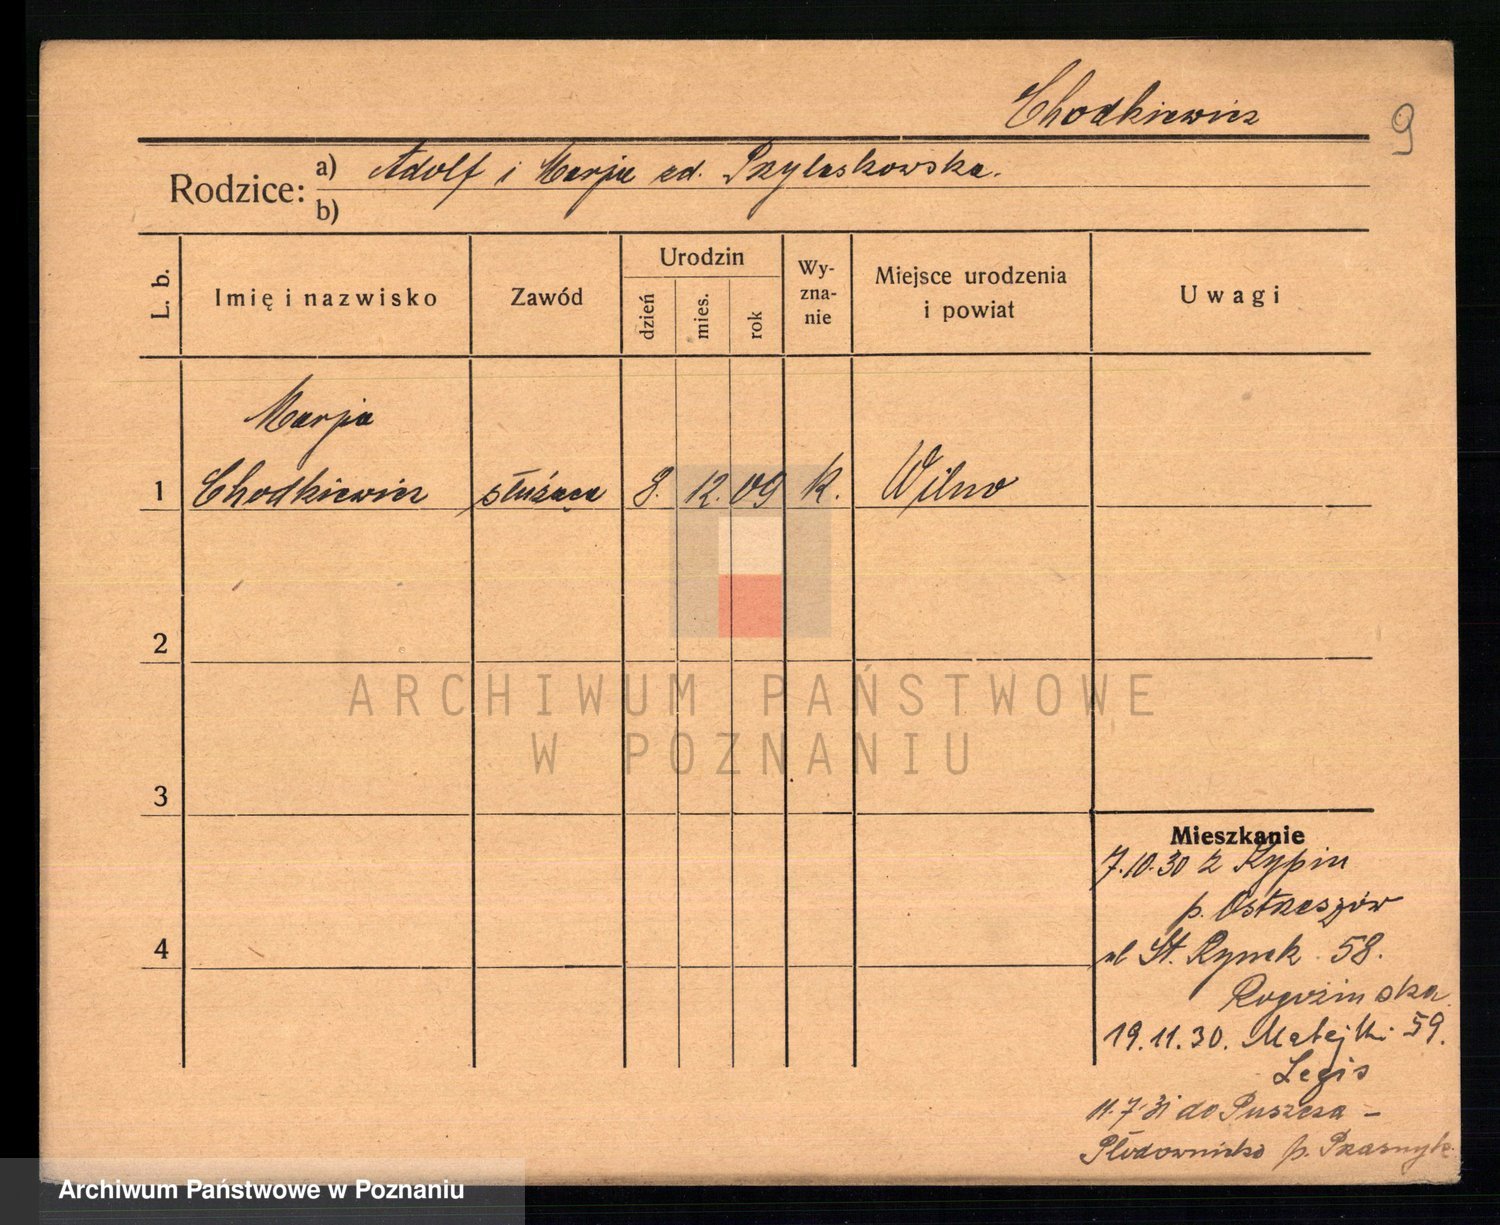 Chodkiewicz
9
Rodzice:
a) Adolf i Marja zd. Przylaskowska.
b)
L. b.
Imię i nazwisko
Zawód
Urodzin
dzień
mies.
rok
Wy-
zna-
nie
Miejsce urodzenia
i powiat
Uwagi
Marja
1 Chodkiewicz służąca 8. 12. 09 k. Wilno
2
ARCHIWUM PAŃSTWOWE
W POZNANIU
3
Mieszkanie
7.10.30 z
p. Ostrzeszów
ul St. Rynek 58.
Rogozińska
19.11.30. Matejki 59.
Legis
11.7.31 do Puszcza –
p. Przasnysk
4
Archiwum Państwowe w Poznaniu